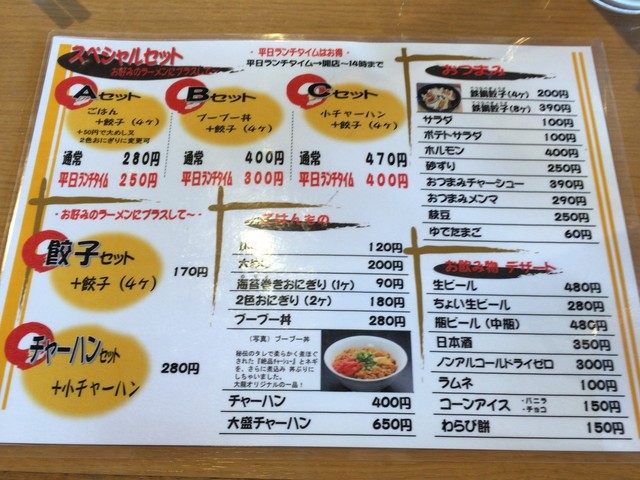 スペシャルセット
お好みのラーメンにプラスして～
- 平日ランチタイムはお得 -
平日ランチタイム→開店～14時まで
Aセット
ごはん
+餃子(4ヶ)
+50円で大めし又
2色おにぎりに変更可
通常 280円
平日ランチタイム 250円
Bセット
ブーブー丼
+餃子(4ヶ)
通常 400円
平日ランチタイム 300円
Cセット
小チャーハン
+餃子(4ヶ)
通常 470円
平日ランチタイム 400円
- お好みのラーメンにプラスして～ -
餃子セット
+餃子(4ヶ)
170円
チャーハンセット
+小チャーハン
280円
ごはんもの
120円
200円
海苔巻きおにぎり(1ヶ) 90円
2色おにぎり(2ヶ) 180円
ブーブー丼 280円
(写真) ブーブー丼
秘伝のタレで柔らかく煮ほぐ
された『絶品チャーシュー』とネギ
を、さらに煮込み 丼ぶりに
しちゃいました。
大龍オリジナルの一品!
チャーハン 400円
大盛チャーハン 650円
おつまみ
鉄鍋餃子(4ヶ) 200円
鉄鍋餃子(8ヶ) 390円
サラダ 100円
ポテトサラダ 100円
ホルモン 400円
砂ずり 250円
おつまみチャーシュー 390円
おつまみメンマ 290円
枝豆 250円
ゆでたまご 60円
お飲み物 デザート
生ビール 480円
ちょい生ビール 280円
瓶ビール(中瓶) 480円
日本酒 350円
ノンアルコールドライゼロ 300円
ラムネ 100円
コーンアイス ・バニラ ・チョコ 150円
わらび餅 150円